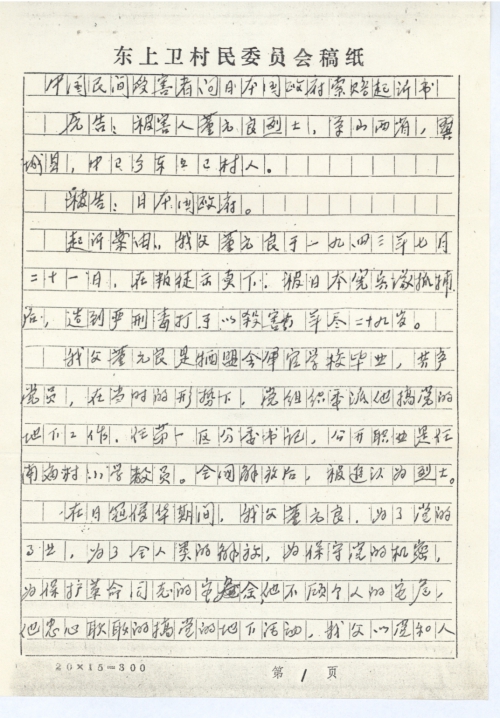 东上卫村民委员会稿纸
中国民间受害者问日本国政府索赔起诉书
原告：被害人董元良烈士，系山西省，翼
城县，中卫乡东上卫村人。
被告：日本国政府。
起诉案由，我父董元良于一九四三年七月
二十一日，在叛徒出卖下，被日本宪兵队抓捕
后，遭到严刑毒打予以殺害，年尽二十九岁。
我父董元良是牺盟会军官学校毕业，共产
党员，在当时的形势下，党组织委派他搞党的
地下工作，任第一区分委书记，公开职业是任
南海村小学教员。全国解放后，被追认为烈士。
在日寇侵华期间，我父董元良，为了党的
工业，为了全人类的解放，为保守党的机密，
为保护革命同志的安全，他不顾个人的安危，
他忠心耿耿的搞党的地下活动，我父以深知人
20×15=300
第 1 页